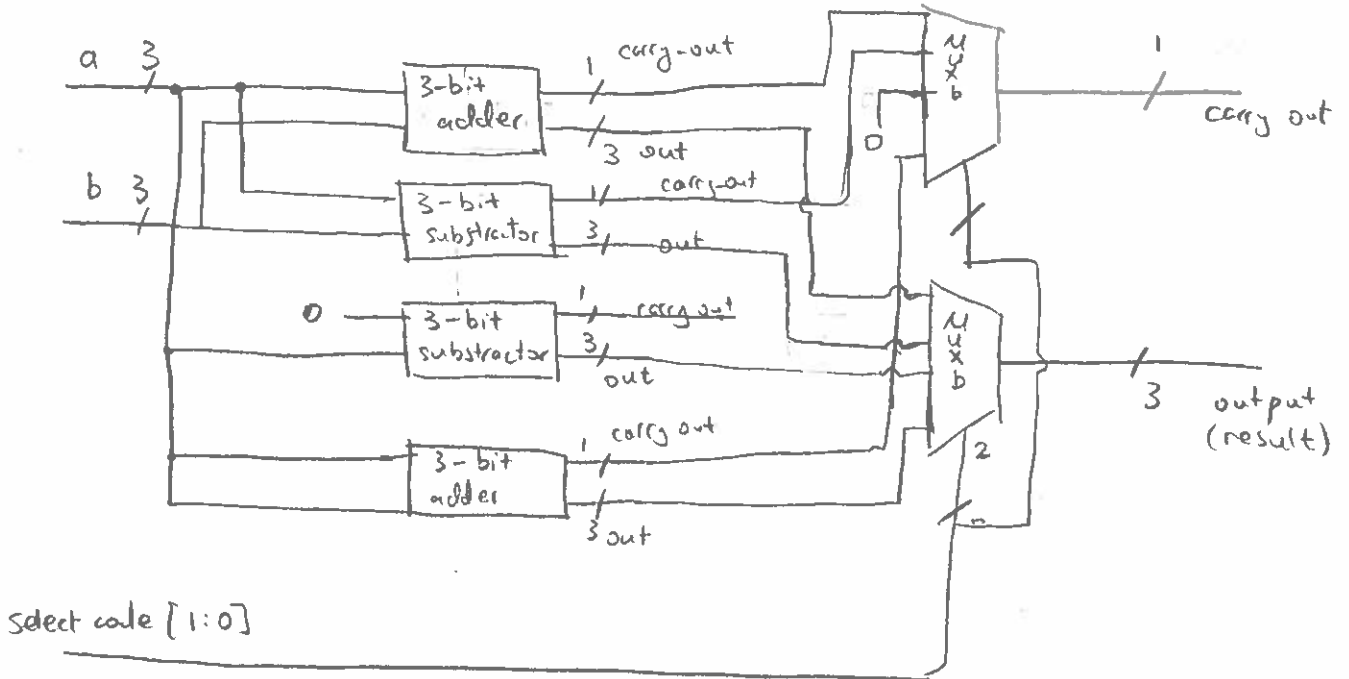 a 3
b 3
3-bit
adder
1 carry-out
3 out
3-bit
substractor
1 carry-out
3 out
0
3-bit
substractor
1 carry out
3
out
3-bit
adder
1 carry out
3 out
Mux
b
0
1
carry out
Mux
b
2
3
output
(result)
select code [1:0]